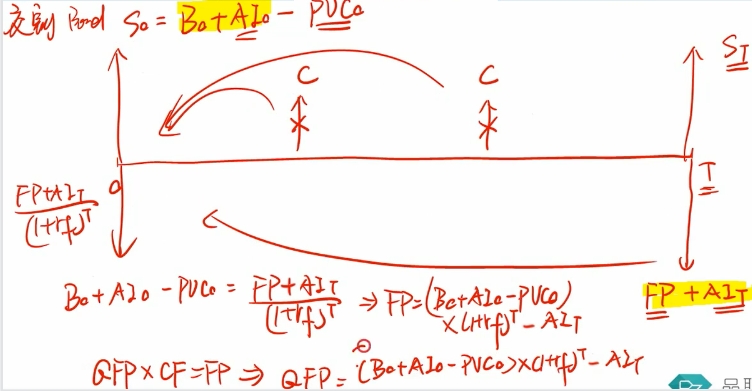 交割 Bond S₀ = B₀+AI₀ - PVC₀
C C S_T
0 T
FP+AI_T
(1+rf)^T
FP+AI_T
B₀+AI₀ - PVC₀ = FP+AI_T / (1+rf)^T ⇒ FP=(B₀+AI₀-PVC₀)
×(1+rf)^T - AI_T
QFP×CF=FP ⇒ QFP= (B₀+AI₀-PVC₀)×(1+rf)^T - AI_T